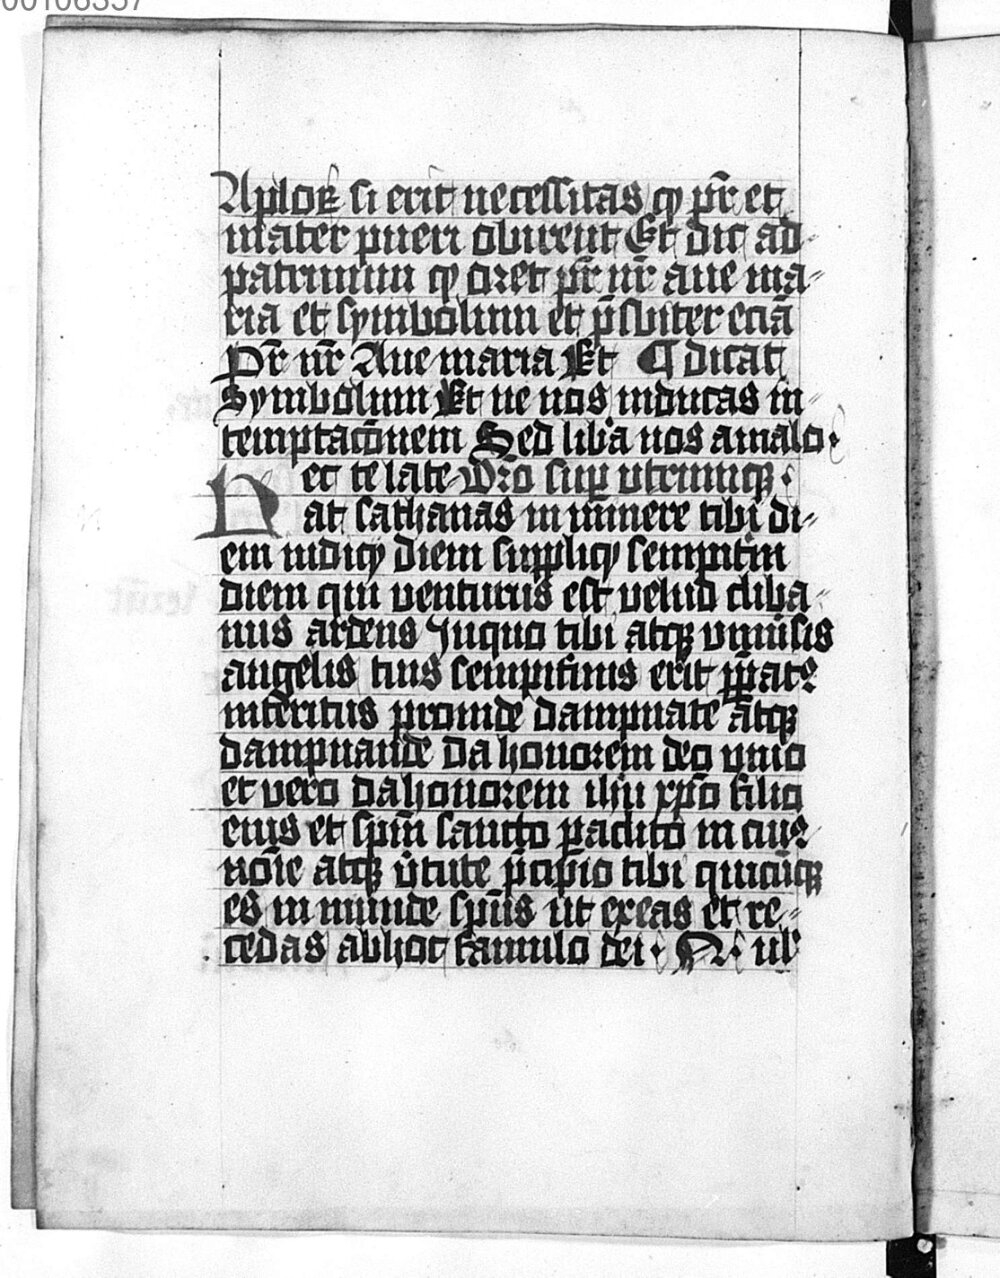 00106357
Aploꝝ si erit necessitas ꝙ pr̄ et
mater pueri obirent Et dic ad
patrinum ꝙ oret pr̄ nr̄ aue ma
ria et symbolum et p̄sbiter eciā
Pr̄ nr̄ Aue maria Et ¶ dicat
Symbolum Et ne nos inducas in
temptacōnem Sed lib̾a nos amalo
ec te late Or̄o suꝑ utrumqꝫ
Nat sathanas in iminere tibi di
em iudicij diem supplicij sempit̾ni
diem qui venturus est velud cliba
nus ardens Inquo tibi atqꝫ vniu̾sis
angelis tuis sempit̾nus erit p̄parat᷒
interitus proinde dampnate atqꝫ
dampnande Da honorem deo viuo
et vero Da honorem ihu xpō filio
eius et spm̄ sancto paclito in cui᷒
nōie atqꝫ v̾tute p̄cipio tibi quicūqꝫ
es in munde spūs ut exeas et re
cedas abhoc famulo dei R ub